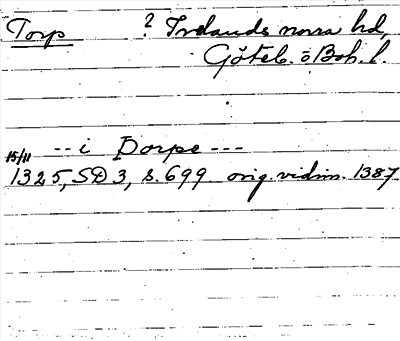 Torp ? Inlands norra hd,
Göteb. o Boh. l.
15/11 -- i Dorpe ---
1325, SD 3, s. 699 orig. vidim. 1387